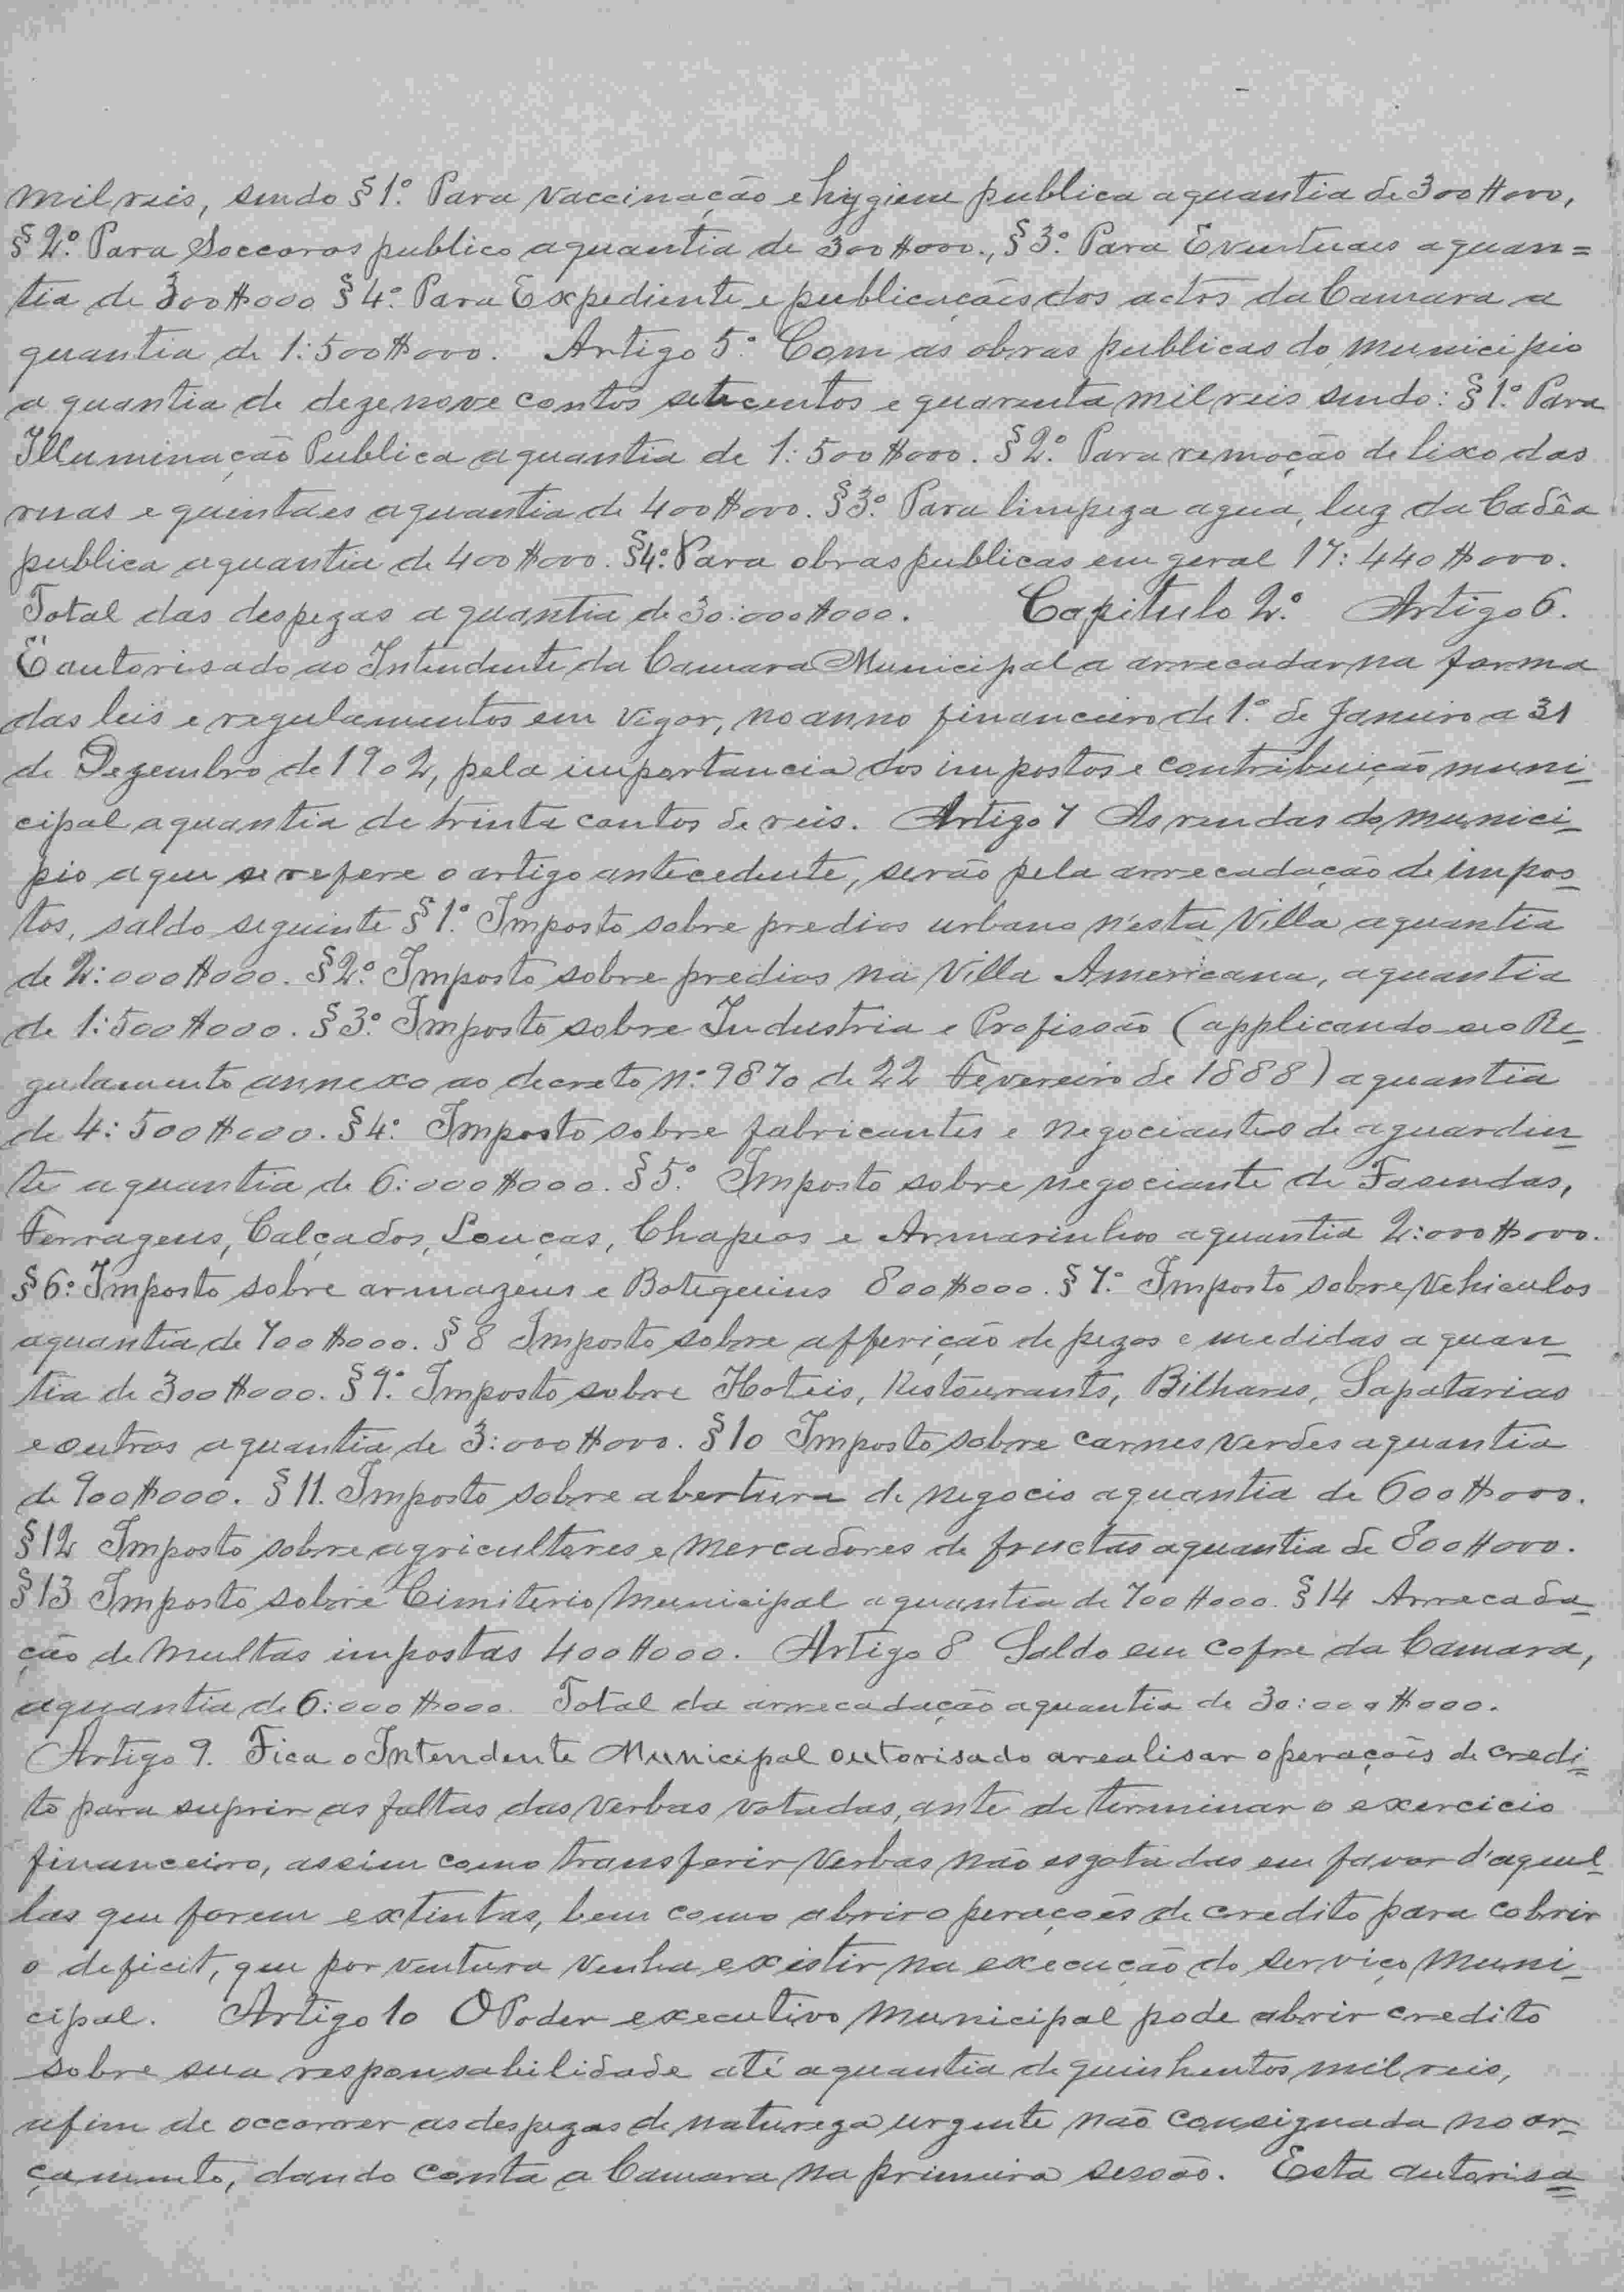 mil reis, sendo § 1º. Para vaccinação e hygiene publica a quantia de 300$000,
§ 2º. Para Soccoros publico a quantia de 300$000., § 3º. Para Eventuaes a quan=
tia de 300$000 § 4º. Para Expediente e publicações dos actos da Camara a
quantia de 1:500$000. Artigo 5º Com as obras publicas do municipio
a quantia de dezenove contos setecentos e quarenta mil reis sendo: § 1º. Para
Illuminação Publica a quantia de 1:500$000. § 2º. Para remoção de lixo das
ruas e quintaes a quantia de 400$000. § 3º. Para limpeza agua, luz da Cadêa
publica a quantia de 400$000. § 4º. Para obras publicas em geral 17:440$000.
Total das despezas a quantia de 30:000$000. Capitulo 2º. Artigo 6.
É autorisado ao Intendente da Camara Municipal a arrecadar na forma
das leis e regulamentos em vigor, no anno financeiro de 1º. de Janeiro a 31
de Dezembro de 1902, pela importancia dos impostos e contribuição muni-
cipal a quantia de trinta contos de reis. Artigo 7 As rendas do munici-
pio a que se refere o artigo antecedente, serão pela arrecadação de impos-
tos, saldo seguinte § 1º. Imposto sobre predios urbano n'esta Villa a quantia
de 2:000$000. § 2º. Imposto sobre predios na Villa Americana, a quantia
de 1:500$000. § 3º. Imposto sobre Industria e Profissão (applicando-se o Re-
gulamento annexo ao decreto nº. 9870 de 22 Fevereiro de 1888) a quantia
de 4:500$000. § 4º. Imposto sobre fabricantes e negociantes de aguarden-
te a quantia de 6:000$000. § 5º. Imposto sobre negociante de Fasendas,
Ferragens, Calçados, Louças, Chapeos e Armarinhos a quantia 2:000$000.
§ 6º. Imposto sobre armazens e Botequins 800$000. § 7º. Imposto sobre Vehiculos
a quantia de 700$000. § 8 Imposto sobre afferição de pezos e medidas a quan-
tia de 300$000. § 9º. Imposto sobre Hoteis, Restourants, Bilhares, Sapatarias
e outros a quantia de 3:000$000. § 10 Imposto sobre carnes verdes a quantia
de 900$000. § 11. Imposto sobre abertura de negocio a quantia de 600$000.
§ 12 Imposto sobre agricultores e mercadores de fructas a quantia de 800$000.
§ 13 Imposto sobre Cimiterio Municipal a quantia de 700$000. § 14 Arrecada-
ção de Multas impostas 400$000. Artigo 8 Saldo em cofre da Camara,
a quantia de 6:000$000. Total da arrecadação a quantia de 30:000$000.
Artigo 9. Fica o Intendente Municipal outorisado a realisar operações de credi-
to para suprir as faltas das Verbas votadas, ante de terminar o exercicio
financeiro, assim como transferir Verbas não esgotadas em favor d'aquel-
las que forem extintas, bem como abrir operações de credito para cobrir
o deficit, que por ventura venha existir na execução do serviço Muni-
cipal. Artigo 10 O Poder executivo Municipal pode abrir credito
sobre sua responsabilidade até a quantia de quinhentos mil reis,
afim de occorrer as despezas de natureza urgente não consignada no or-
çamento, dando conta a Camara na primeira sessão. Esta autorisa=